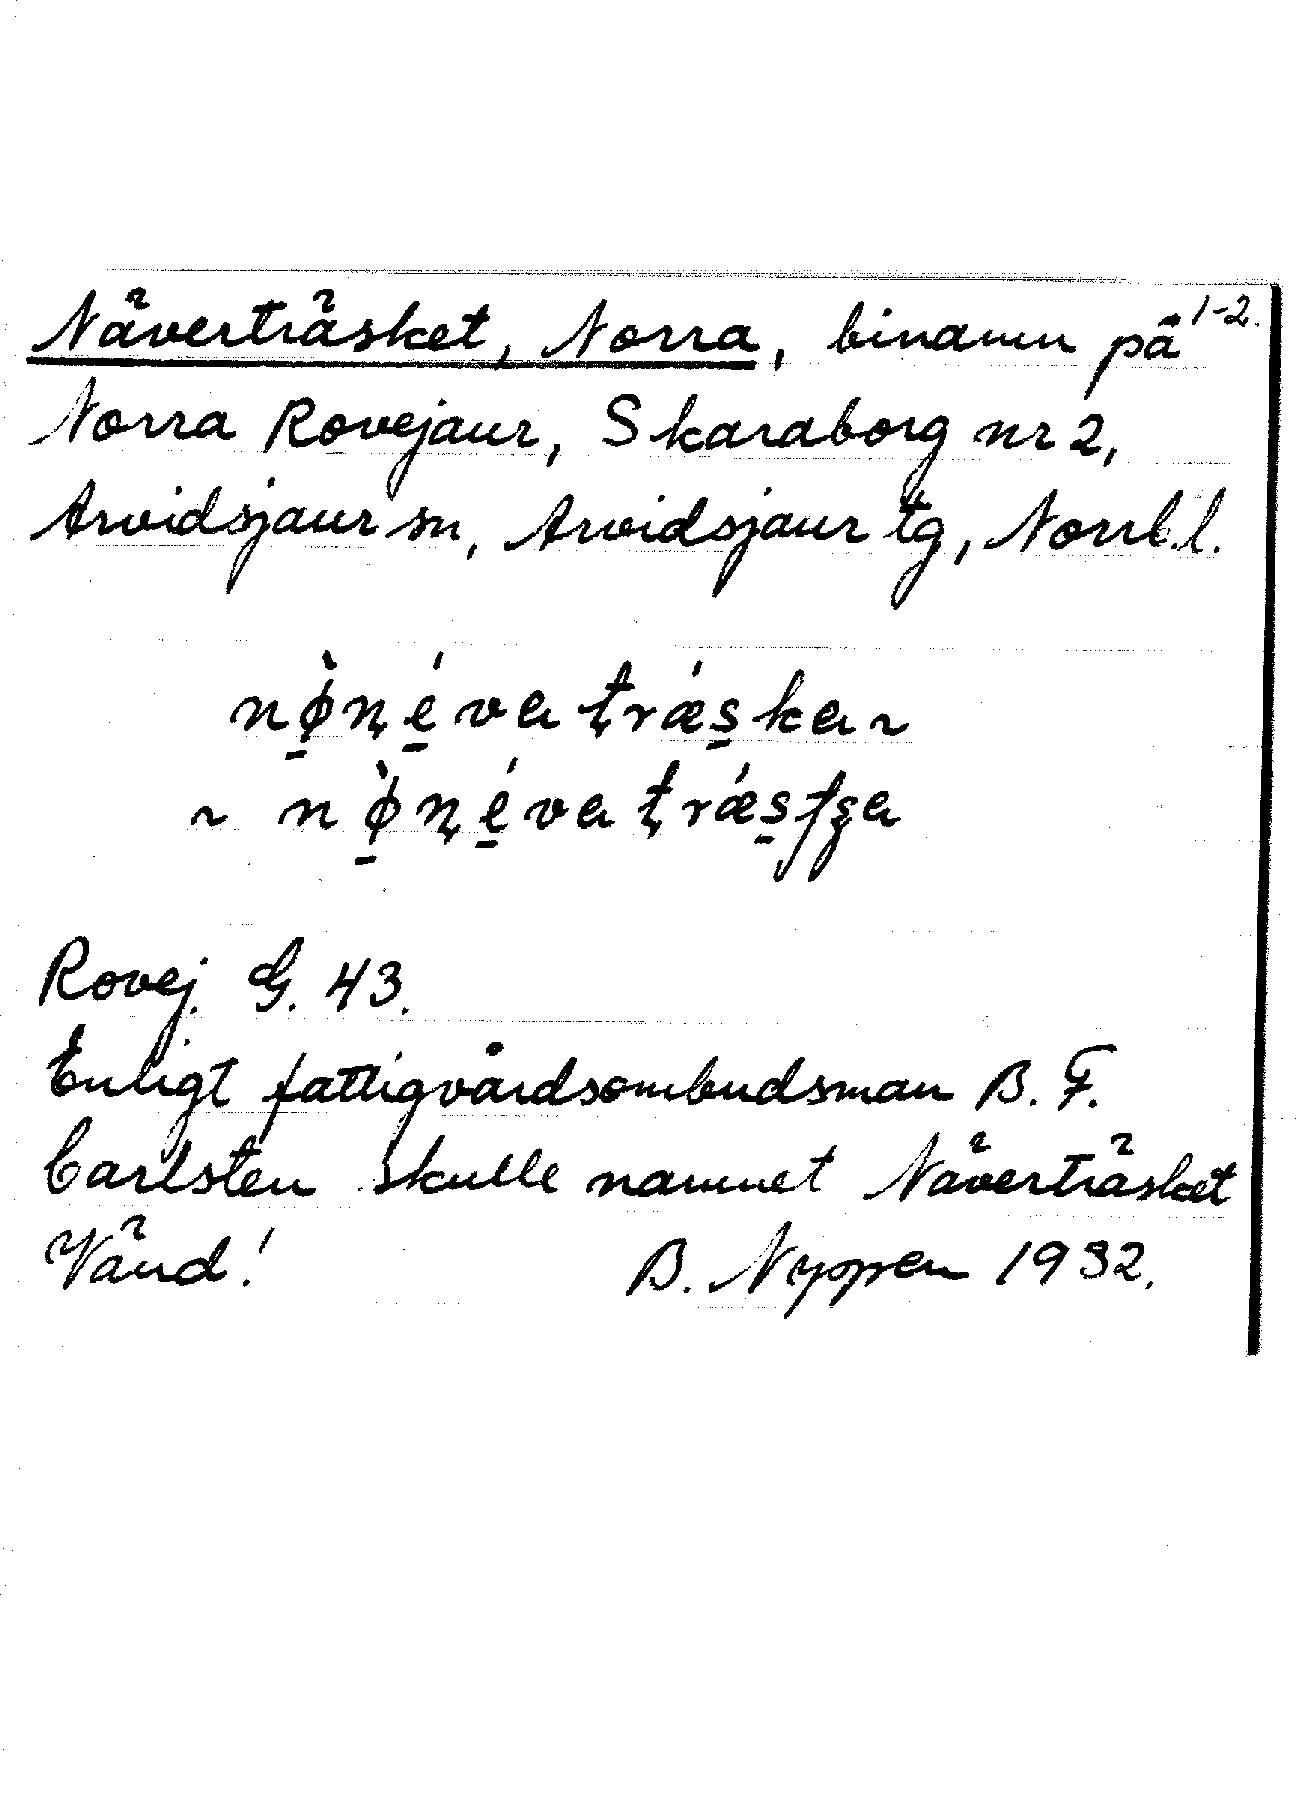 Näverträsket, Norra, binamn på 1-2.
Norra Rovejaur, Skaraborg nr 2,
Arvidsjaur sn, Arvidsjaur tg, Norrb.l.
nø̱̀ṇé̱va ṭrǽs̱ka ~
~ nø̱̀ṇé̱va ṭrǽs̱tʂa
Rovej. G. 43.
Enligt fattigvårdsombudsman B. F.
Carlsten skulle namnet Näverträsket
Vänd! B. Nyppen 1932.